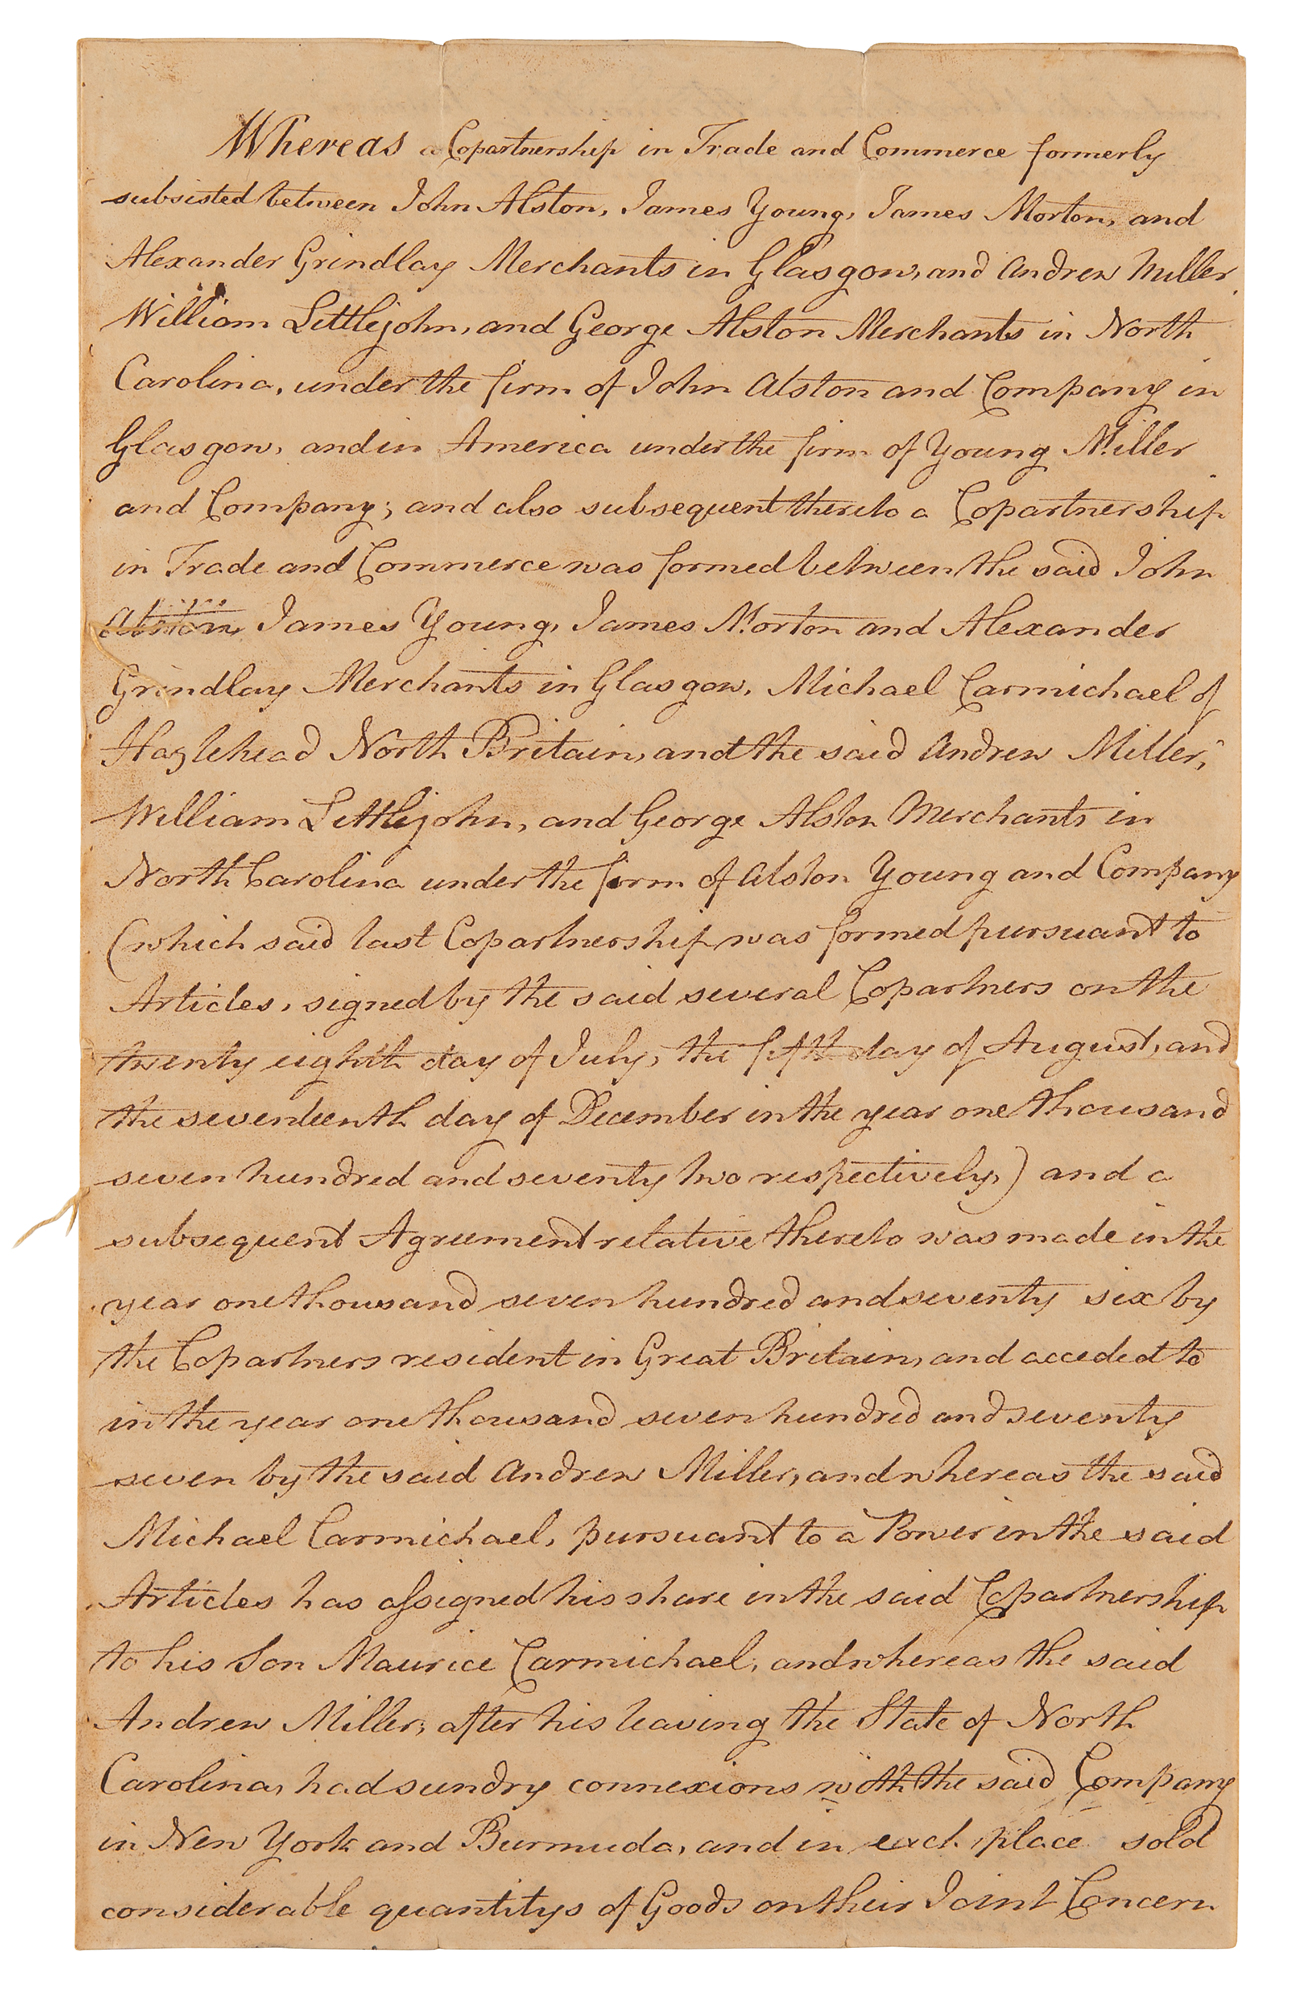 Whereas a Copartnership in Trade and Commerce formerly
subsisted between John Alston, James Young, James Morton, and
Alexander Grindlay Merchants in Glasgow, and Andrew Miller,
William Littlejohn, and George Alston Merchants in North
Carolina, under the firm of John Alston and Company in
Glasgow, and in America under the firm of Young Miller
and Company; and also subsequent thereto a Copartnership
in Trade and Commerce was formed between the said John
Alston, James Young, James Morton and Alexander
Grindlay Merchants in Glasgow, Michael Carmichael of
Hazlehead North Britain, and the said Andrew Miller,
William Littlejohn, and George Alston Merchants in
North Carolina under the firm of Alston Young and Company
(which said last Copartnership was formed pursuant to
Articles, signed by the said several Copartners on the
twenty eighth day of July, the fifth day of August, and
the seventeenth day of December in the year one thousand
seven hundred and seventy two respectively,) and a
subsequent Agreement relative thereto was made in the
year one thousand seven hundred and seventy six by
the Copartners resident in Great Britain, and acceded to
in the year one thousand seven hundred and seventy
seven by the said Andrew Miller, and whereas the said
Michael Carmichael, pursuant to a Power in the said
Articles has assigned his share in the said Copartnership
to his Son Maurice Carmichael, and whereas the said
Andrew Miller, after his leaving the State of North
Carolina, had sundry connexions with the said Company
in New York and Bermuda, and in each place sold
considerable quantitys of Goods on their Joint Concern